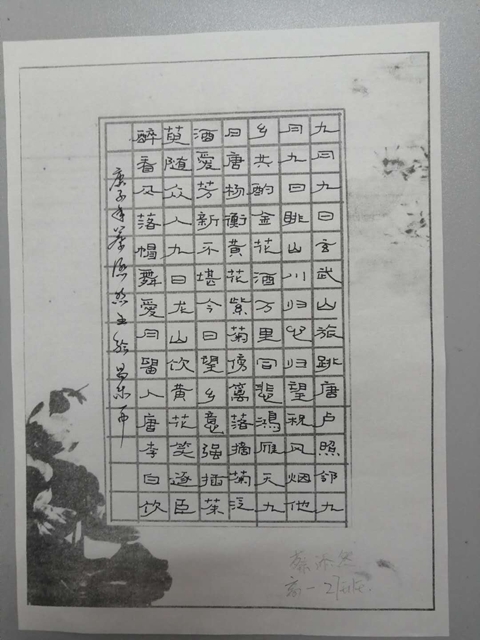 九月九日玄武山旅眺唐卢照邻九
月九日眺山川归心归望积风烟他
乡共酌金花酒万里同悲鸿雁天九
日唐杨衡黄花紫菊傍篱落摘菊泛
酒爱芳新不堪今日望乡意强插茱
萸随众人九日龙山饮黄花笑逐臣
醉看风落帽舞爱月留人唐李白饮
庚子年蔡沛然书於昌乐
蔡沛然
高一